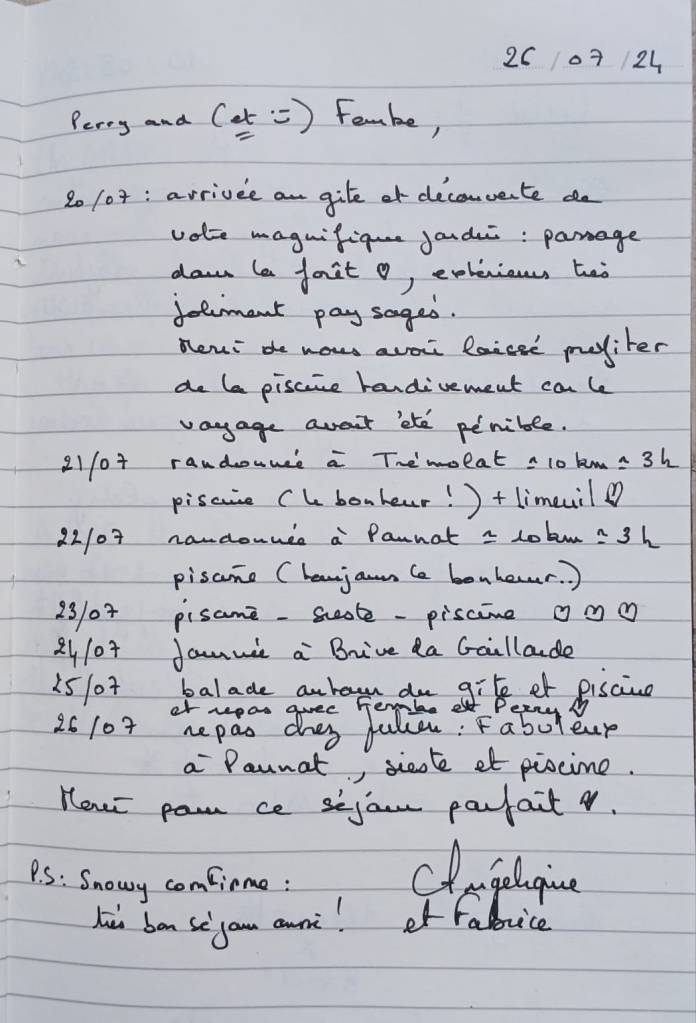 26/07/24
Perry and (et :=) Fembe,
20/07 : arrivée au gîte et découverte de
votre magnifique jardin : passage
dans la forêt ♡, extérieurs très
joliment paysagés.
Merci de nous avoir laissé profiter
de la piscine tardivement car le
voyage avait été pénible.
21/07 randonnée à Trémolat ≃ 10 km ≃ 3h
piscine (le bonheur !) + Limeuil ♡
22/07 randonnée à Paunat ≃ 10km ≃ 3h
piscine (toujours le bonheur..)
23/07 piscine - sieste - piscine ♡ ♡ ♡
24/07 Journée à Brive La Gaillarde
25/07 balade autour du gîte et piscine
et repas avec Fembe et Perry ♡
26/07 repas chez Julien : Fabuleux
à Paunat, sieste et piscine.
Merci pour ce séjour parfait ♡.
P.S: Snowy comfirme :
très bon séjour aussi !
Angélique
et Fabrice